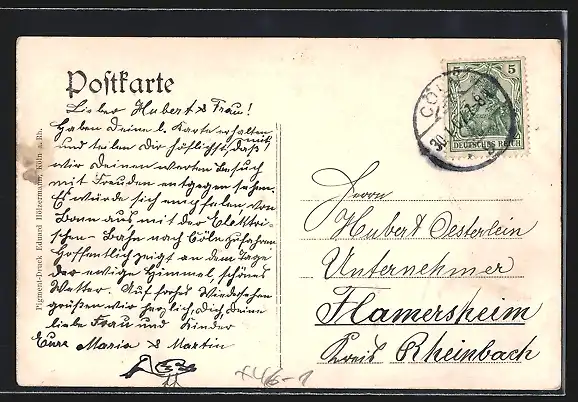 Postkarte
Lieber Hubert & Frau!
Haben Deine l. Karte erhalten
und teilen Dir höflichst mit, daß
wir Deinen werten Besuch
mit Freuden entgegen sehen.
Es würde sich empfehlen von
Bonn aus mit der Elektri-
schen-Bahn nach Cöln zu fahren
Hoffentlich zeigt an dem Tage
der ewige Himmel schönes
Wetter. Auf frohes Wiedersehen
grüßen wir herzlich, Dich, Deine
liebe Frau und Kinder
Eure Maria & Martin
Pigment-Druck Eduard Hölzermann, Köln a. Rh.
CÖLN
5 5
DEUTSCHES REICH
Herrn
Hubert Oesterlein
Unternehmer
Flamersheim
Kreis Rheinbach